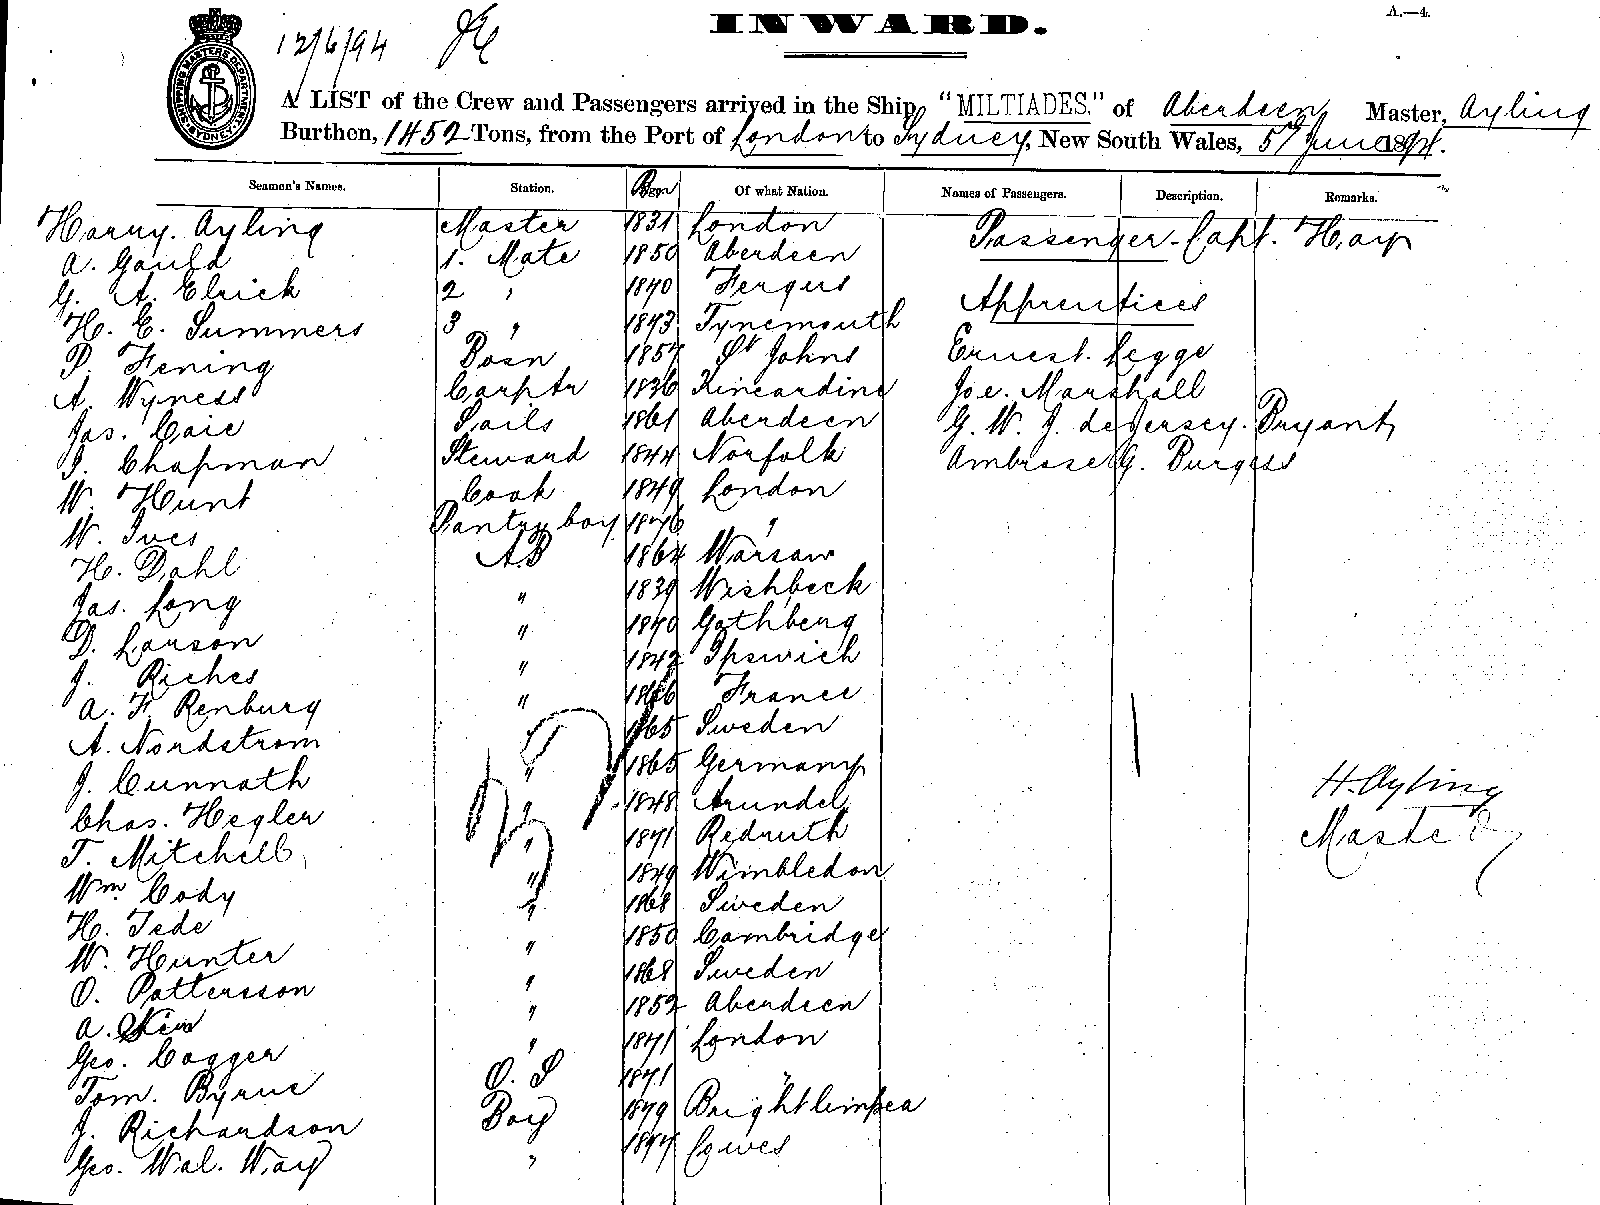 INWARD.
A.—4.
12/6/94
SHIPPING MASTERS DEPARTMENT SYDNEY
A LIST of the Crew and Passengers arrived in the Ship "MILTIADES." of Aberdeen, Master, Ayling
Burthen, 1452 Tons, from the Port of London to Sydney, New South Wales, 5th June 1894.
Seamen's Names. Station. Of what Nation. Names of Passengers. Description. Remarks.
Harry. Ayling Master 1831 London Passenger - Capt. Hay
A. Gauld 1. Mate 1850 Aberdeen
G. A. Elrick 2 " 1840 Fergus Apprentices
H. E. Summers 3 " 1843 Tynemouth
P. Fening Bosn 1857 St Johns Ernest. Legge
A. Wyness Carptr 1836 Kincardine Joe. Marshall
Jas. Caie Sails 1861 Aberdeen G. W. J. de Jersey. Bryant
J. Chapman Steward 1844 Norfolk Ambrose G. Burgess
W. Hunt Cook 1849 London
W. Ives Pantry boy 1876 "
H. Dahl AB 1864 Warsaw
Jas. Long " 1839 Wishbeck
D. Larson " 1870 Gothberg
J. Riches " 1842 Ipswich
A. F. Renburg " 1866 France
A. Nordstrom " 1865 Sweden
J. Cunnath " 1865 Germany
Chas. Hegler " 1848 Arundel
T. Mitchell " 1871 Redruth
Wm Cody " 1849 Wimbledon
H. Tede " 1868 Sweden
W. Hunter " 1850 Cambridge
O. Pattersson " 1868 Sweden
A. " 1852 Aberdeen
Geo. Cogger " 1871 London
Tom. Byrne O. S 1871 "
J. Richardson Boy 1879
Geo. Wal. Way " 1877 Cowes
H. Ayling
Master